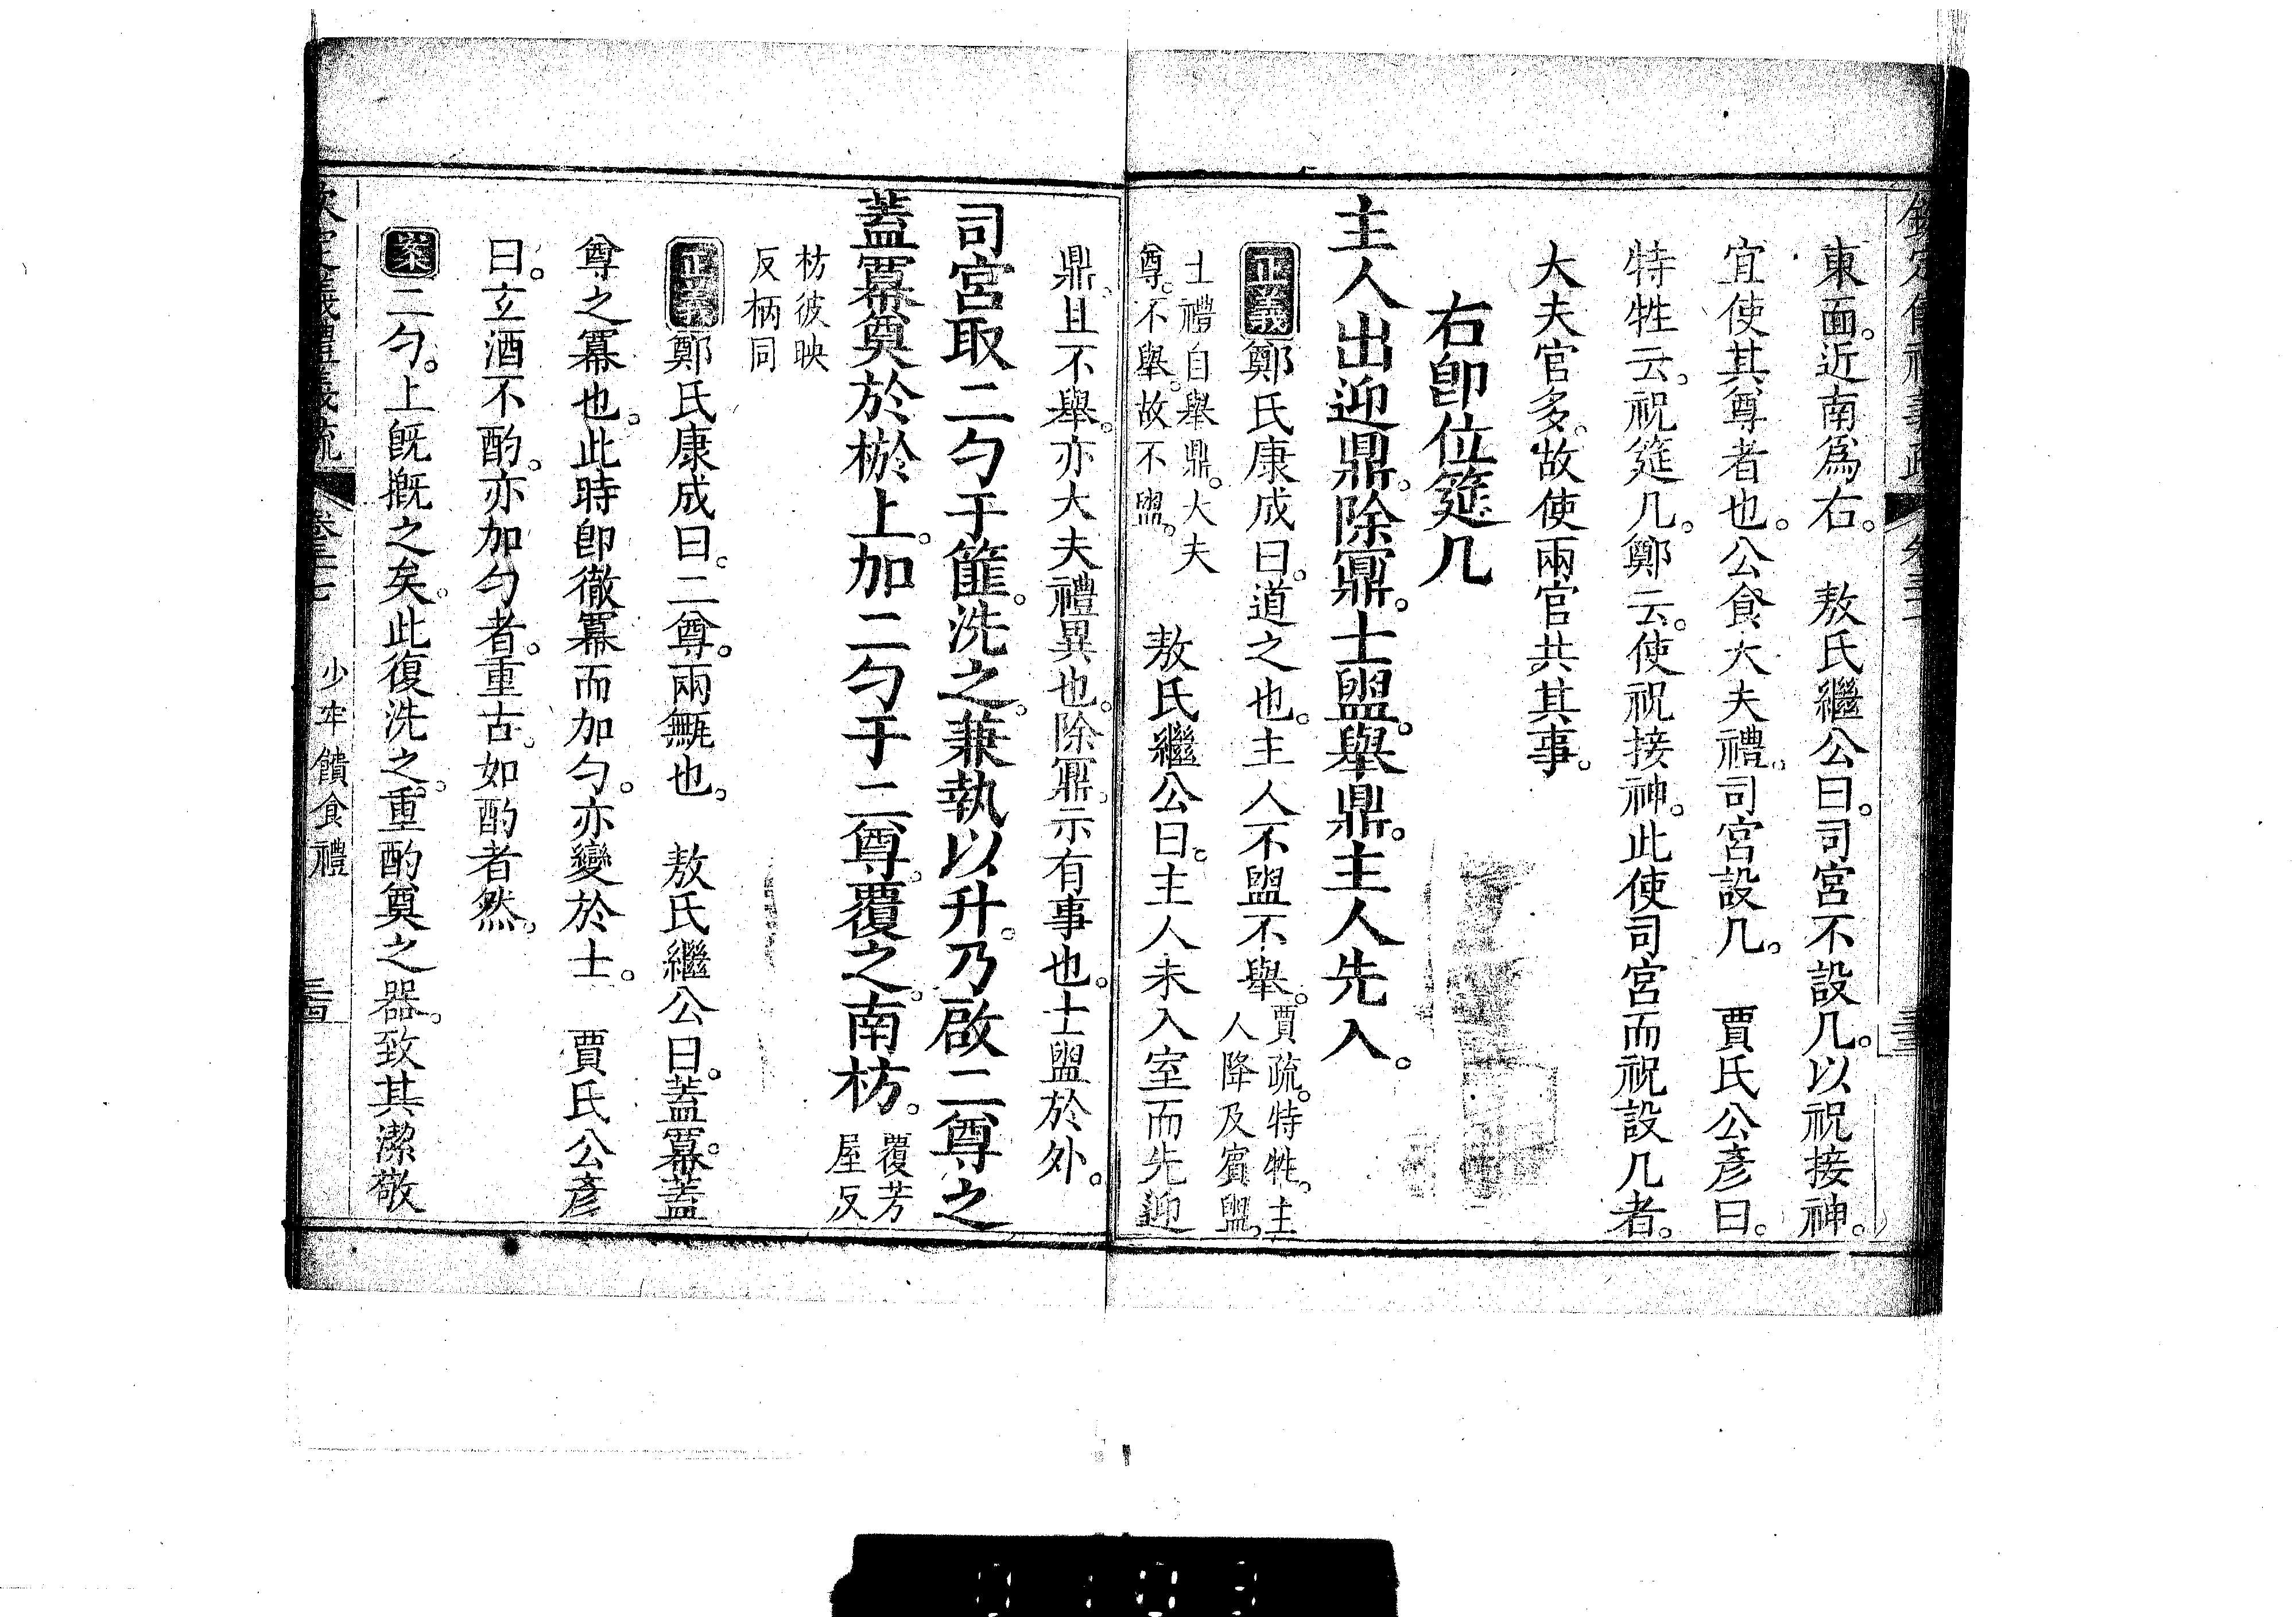 欽定儀禮義疏 卷三十七 三三
東面。近南為右。 敖氏繼公曰。司宮不設几。以祝接神。
宜使其尊者也。公食大夫禮。司宮設几。 賈氏公彥曰。
特牲云。祝筵几。鄭云。使祝接神。此使司宮而祝設几者。
大夫官多。故使兩官共其事。
右卽位筵几
主人出迎鼎。除鼏。士盥。舉鼎。主人先入。
正義鄭氏康成曰。道之也。主人不盥不舉。賈疏。特牲。主人降及賓盥。
士禮自舉鼎。大夫尊。不舉。故不盥。 敖氏繼公曰。主人未入室而先迎
鼎。且不舉。亦大夫禮異也。除鼏。示有事也。士盥於外。
司宮取二勺于篚。洗之。兼執以升。乃啟二尊之
蓋冪奠於棜上。加二勺于二尊。覆之。南枋。覆芳屋反
枋彼映反柄同
正義鄭氏康成曰。二尊。兩甒也。 敖氏繼公曰。蓋冪。蓋
尊之冪也。此時卽徹冪而加勺。亦變於士。 賈氏公彥
曰。玄酒不酌。亦加勺者。重古。如酌者然。
案二勺。上旣摡之矣。此復洗之。重酌奠之器。致其潔敬
欽定儀禮義疏 卷三十七 少牢饋食禮 三四